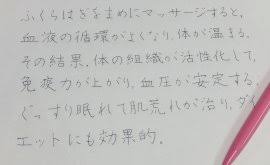 ふくらはぎをまめにマッサージすると、
血液の循環がよくなり、体が温まる。
その結果、体の組織が活性化して、
免疫力が上がり、血圧が安定する。
ぐっすり眠れて肌荒れが治り、ダイ
エットにも効果的。